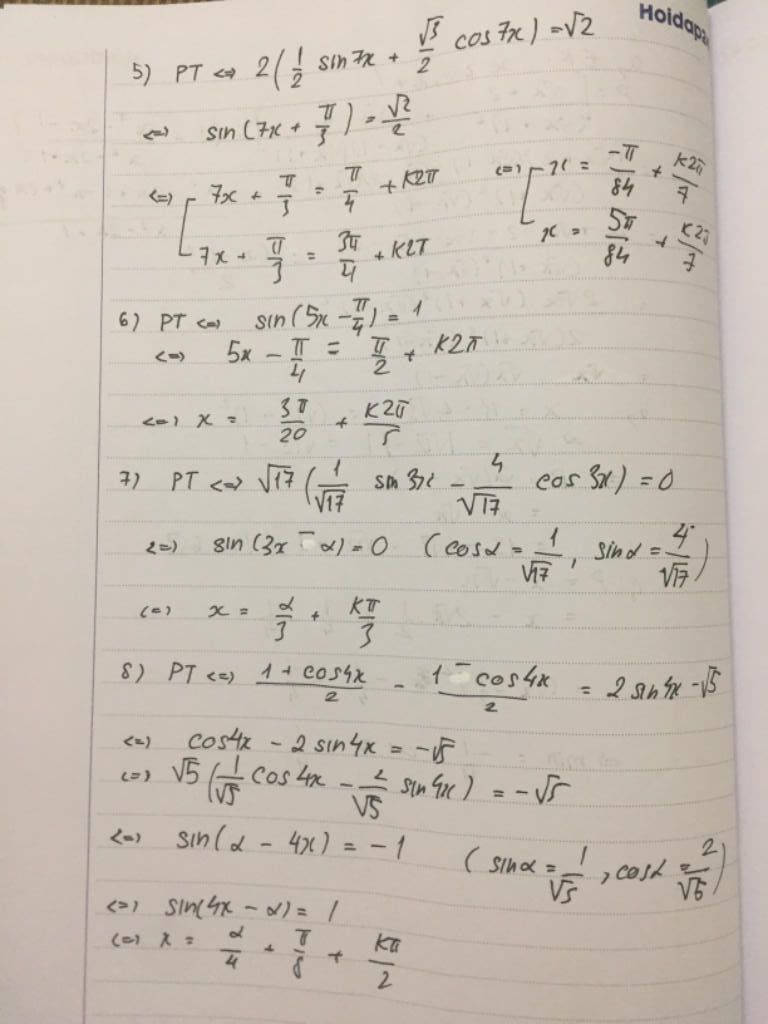 Hoidapa
5) PT <=> 2(1/2 sin7x + √3/2 cos7x) = √2
<=> sin(7x + π/3) = √2/2
<=> [ 7x + π/3 = π/4 + K2π <=> [ x = -π/84 + K2π/7
7x + π/3 = 3π/4 + K2π x = 5π/84 + K2π/7
6) PT <=> sin(5x - π/4) = 1
<=> 5x - π/4 = π/2 + K2π
<=> x = 3π/20 + K2π/5
7) PT <=> √17(1/√17 sin 3x - 4/√17 cos 3x) = 0
<=> sin(3x - α) = 0 (cosα = 1/√17, sinα = 4/√17)
<=> x = α/3 + Kπ/3
8) PT <=> (1 + cos4x)/2 - (1 - cos4x)/2 = 2 sin4x - √5
<=> cos4x - 2 sin4x = -√5
<=> √5(1/√5 cos4x - 2/√5 sin4x) = -√5
<=> sin(α - 4x) = -1 (sinα = 1/√5, cosα = 2/√5)
<=> sin(4x - α) = 1
<=> x = α/4 + π/8 + Kπ/2